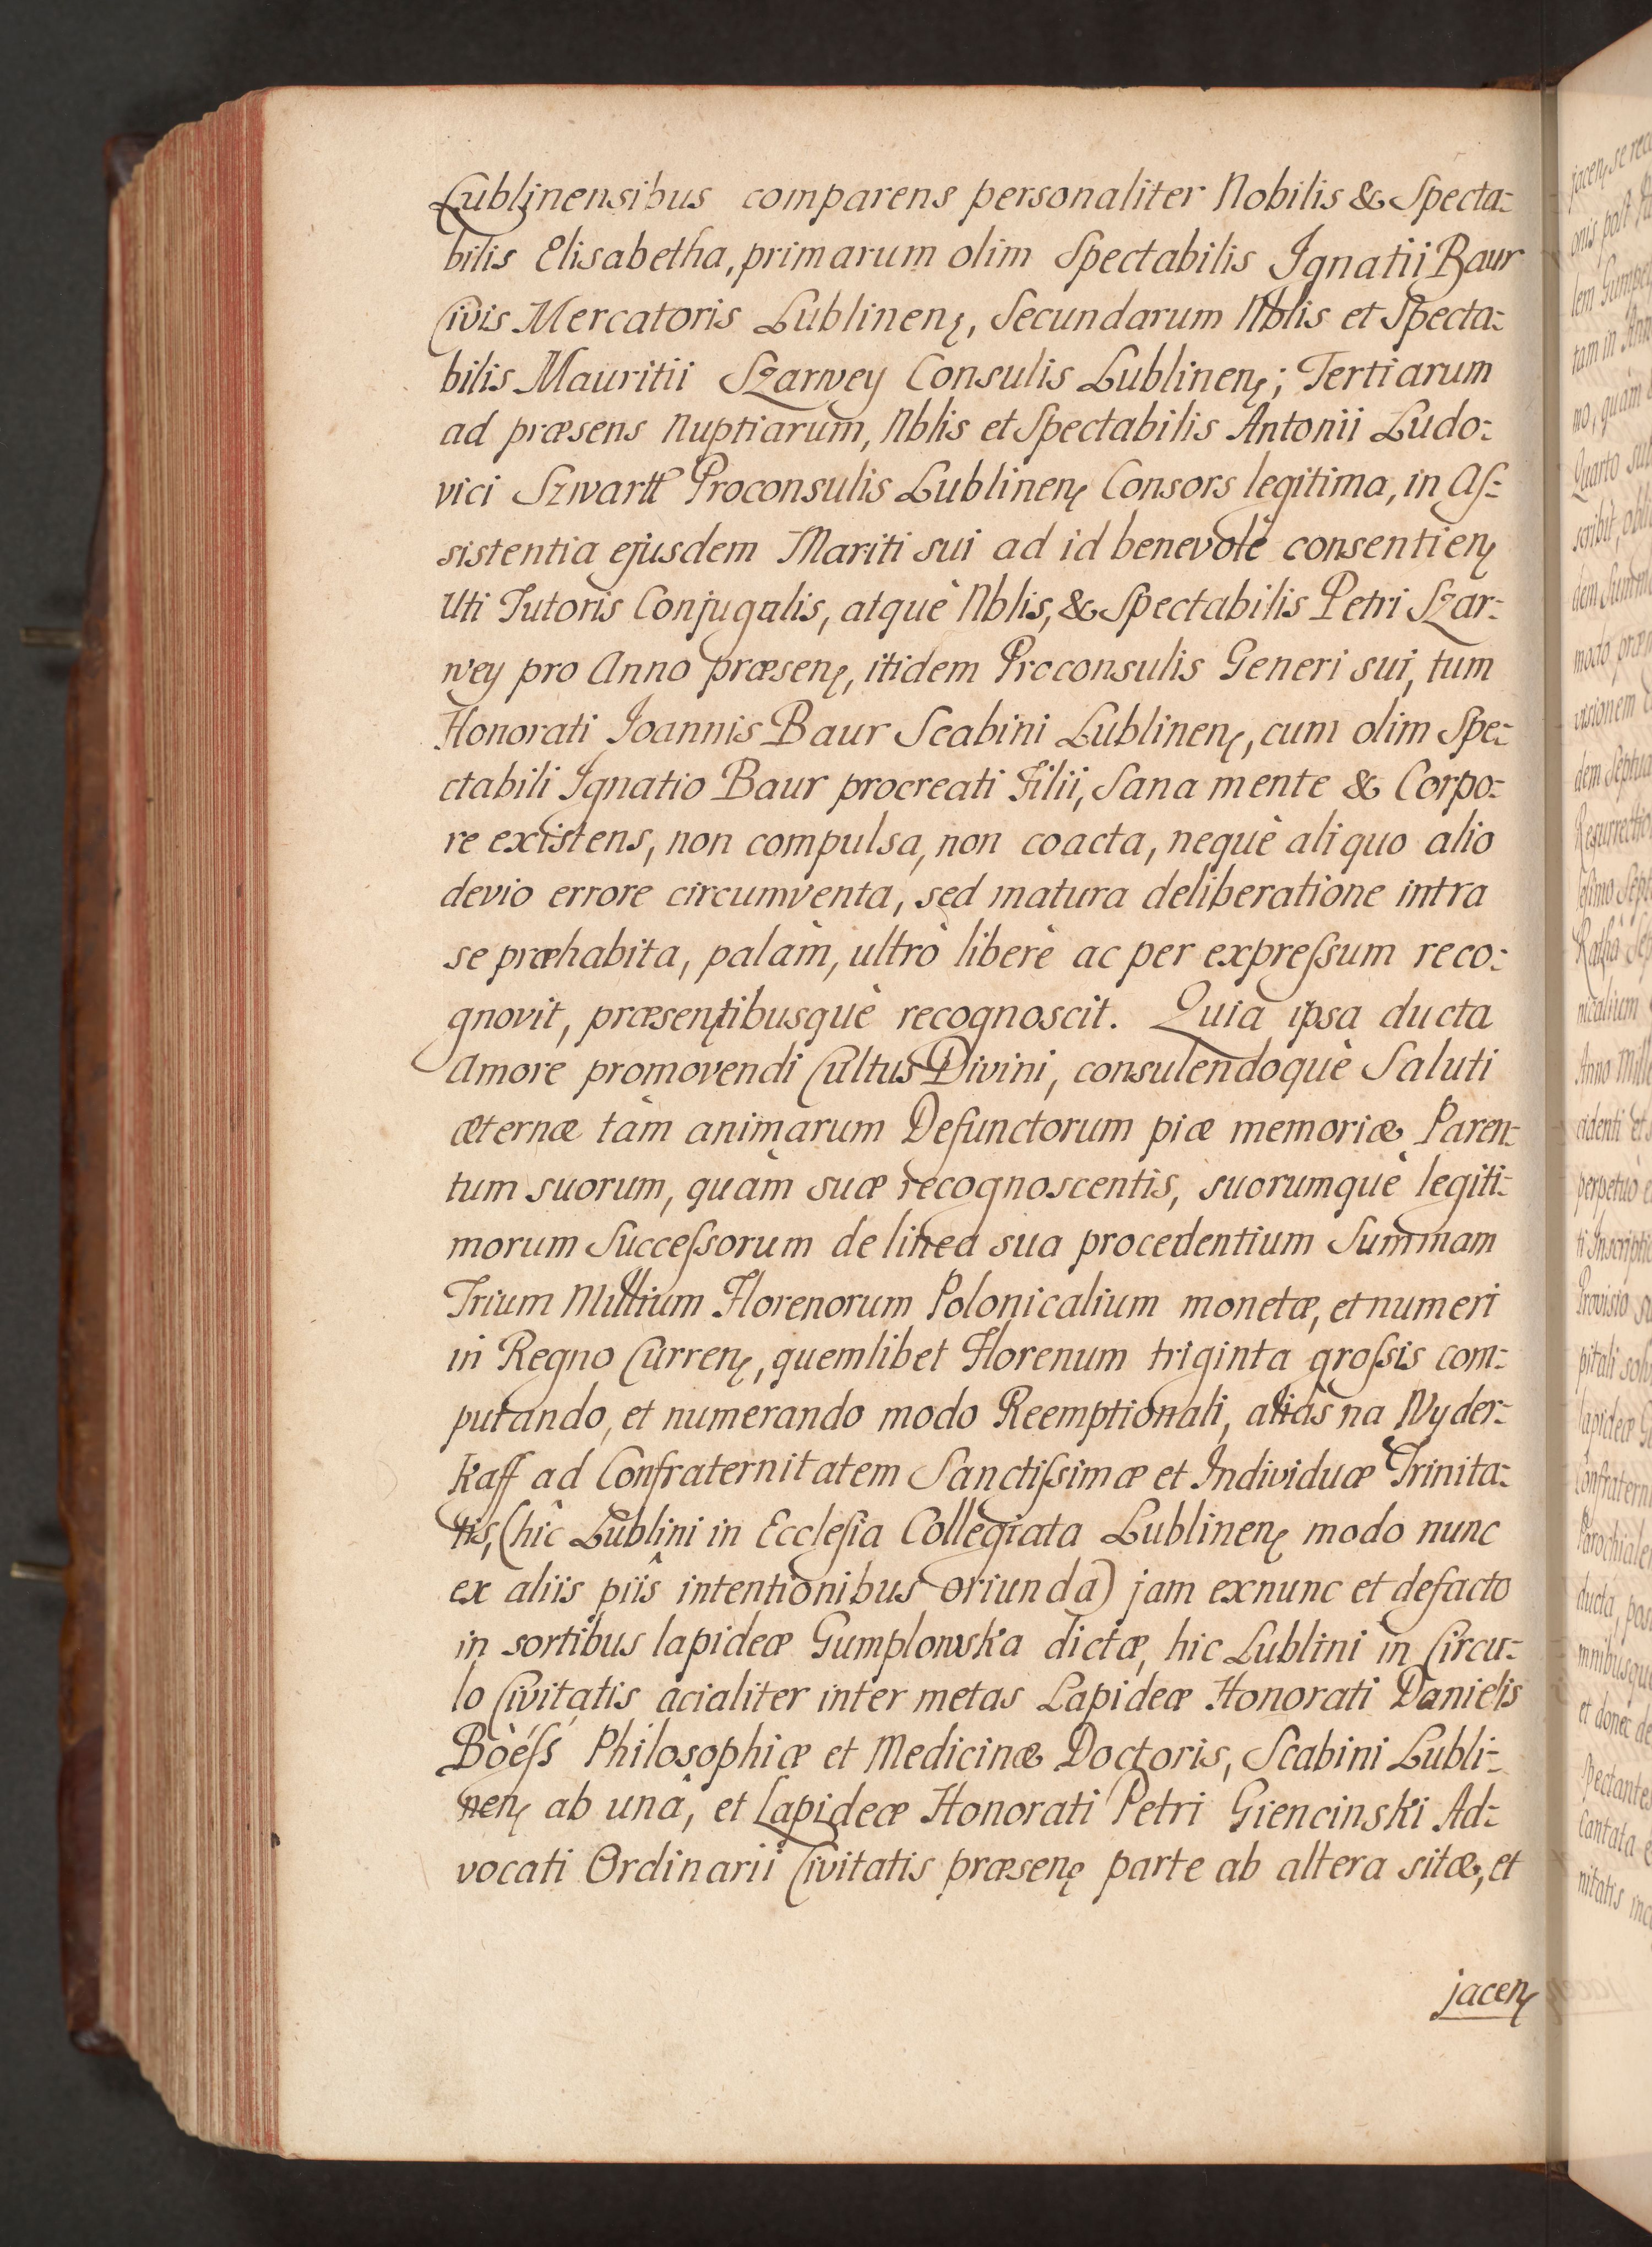 Lublinensibus comparens personaliter Nobilis & Specta:
bilis Elisabetha, primarum olim Spectabilis Ignatii Baur
Civis Mercatoris Lublinenę, Secundarum Nblis et Specta:
bilis Mauritii Szarwey Consulis Lublinenę; Tertiarum
ad præsens Nuptiarum, Nblis et Spectabilis Antonii Ludo:
vici Szwartt Proconsulis Lublinenę Consors legitima, in Aſ:
sistentia ejusdem Mariti sui ad id benevolè consentienę
Uti Tutoris Conjugalis, atquè Nblis, & Spectabilis Petri Szar:
wey pro Anno præsenę, itidem Proconsulis Generi sui, tum
Honorati Joannis Baur Scabini Lublinenę, cum olim Spe:
ctabili Ignatio Baur procreati Filii, Sana mente & Corpo:
re existens, non compulsa, non coacta, nequè aliquo alio
devio errore circumventa, sed matura deliberatione intra
se præhabita, palàm, ultrò liberè ac per expreſsum reco:
gnovit, præsentibusquè recognoscit. Quia ipsa ducta
Amore promovendi Cultus Divini, consulendoquè Saluti
æternæ tàm animarum Defunctorum piæ memoriæ Paren:
tum suorum, quàm suæ recognoscentis, suorumquè legiti:
morum Succeſsorum de linea sua procedentium Summam
Trium Millium Florenorum Polonicalium monetæ, et numeri
in Regno Currenę, quemlibet Florenum triginta groſsis com:
putando, et numerando modo Reemptionali, aliàs na Wyder:
Kaff ad Confraternitatem Sanctiſsimæ et Individuæ Trinita:
tis, (hîc Lublini in Eccleſia Collegiata Lublinenę modo nunc
ex aliis piîs intentionibus oriunda) jam exnunc et defacto
in sortibus lapideæ Gumplowska dictæ, hic Lublini in Circu:
lo Civitatis acialiter inter metas Lapideæ Honorati Danielis
Bòéſś Philosophiæ et Medicinæ Doctoris, Scabini Lubli:
nenę ab unâ, et Lapideæ Honorati Petri Giencinski Ad:
vocati Ordinarii Civitatis præsenę parte ab altera sitæ, et
jacenę